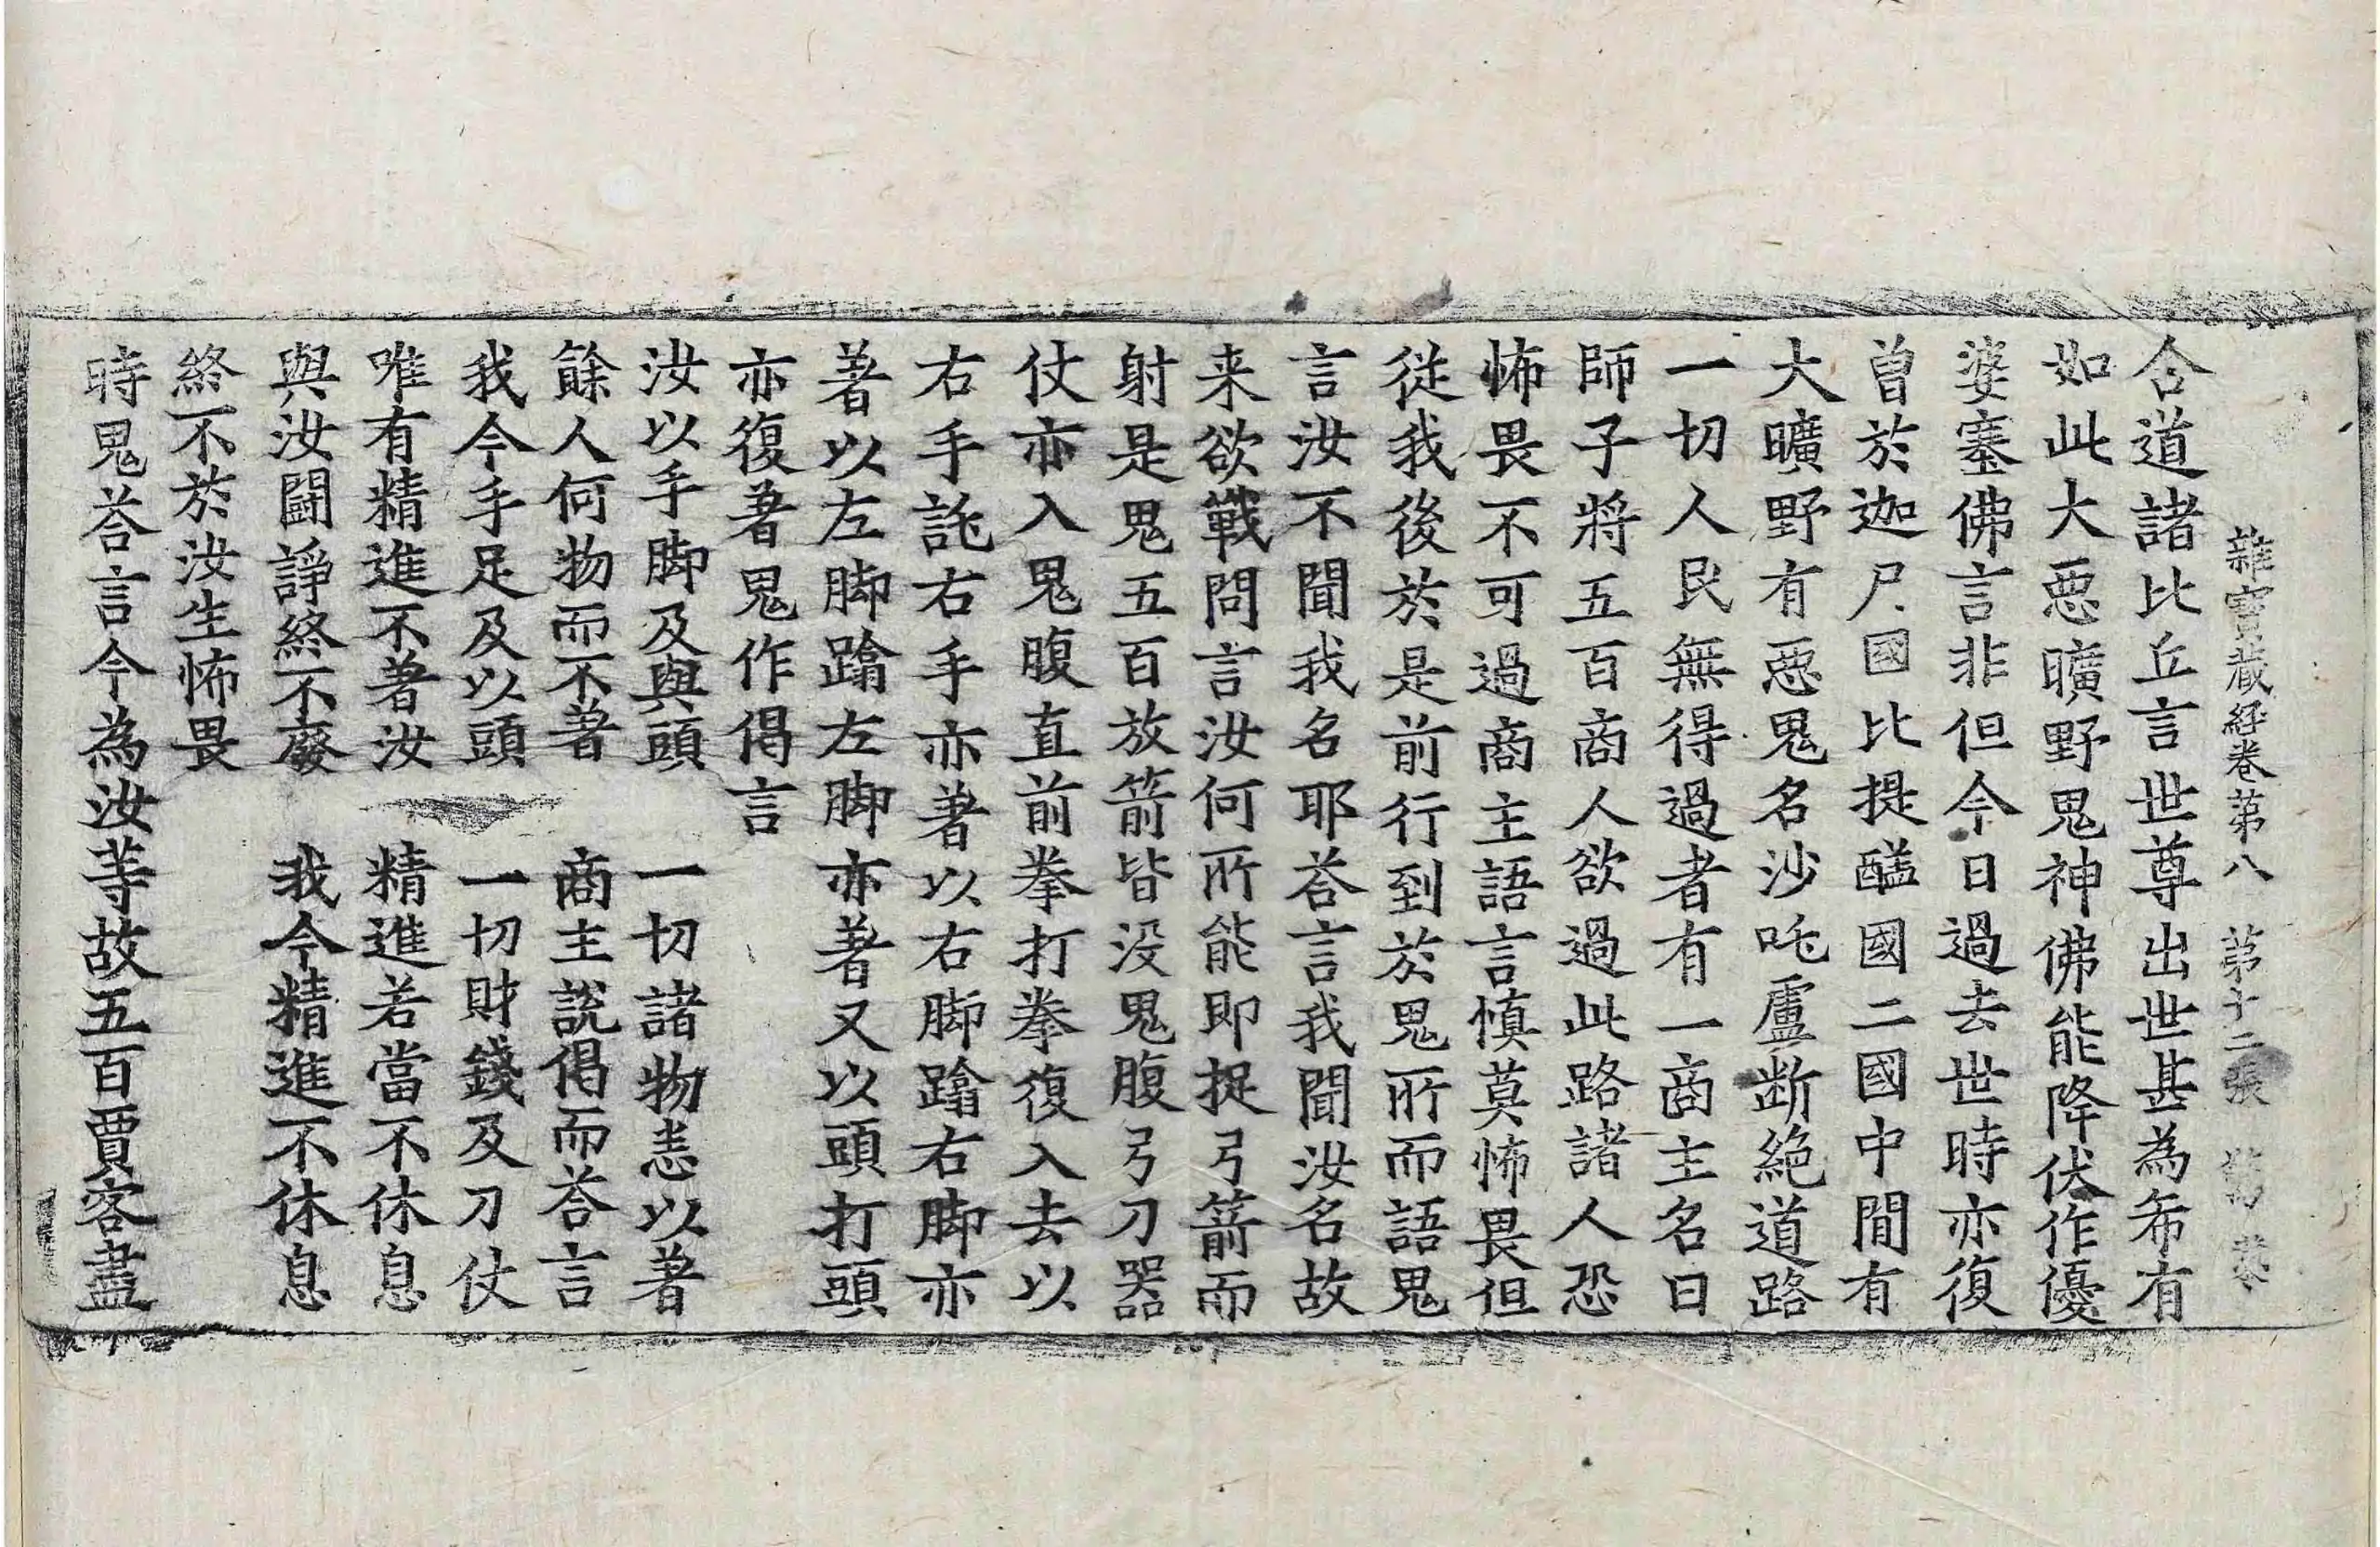 雜寶蔵經卷第八 第十二張
合道諸比丘言世尊出世甚為希有
如此大惡曠野鬼神佛能降伏作優
婆塞佛言非但今日過去世時亦復
曽於迦尸國比提醯國二國中閒有
大曠野有惡鬼名沙吒盧断絶道路
一切人民無得過者有一商主名曰
師子將五百商人欲過此路諸人恐
怖畏不可過商主語言慎莫怖畏但
従我後於是前行到於鬼所而語鬼
言汝不聞我名耶荅言我聞汝名故
来欲戰問言汝何所能即捉弓箭而
射是鬼五百放箭皆没鬼腹弓刀器
仗亦入鬼腹直前拳打拳復入去以
右手託右手亦著以右脚蹹右脚亦
著以左脚蹹左脚亦著又以頭打頭
亦復著鬼作偈言
汝以手脚及與頭 一切諸物恙以著
餘人何物而不著 商主說偈而荅言
我今手足及以頭 一切財錢及刀仗
唯有精進不著汝 精進若當不休息
與汝闘諍終不廢 我今精進不休息
終不於汝生怖畏
時鬼荅言今為汝等故五百賈客盡